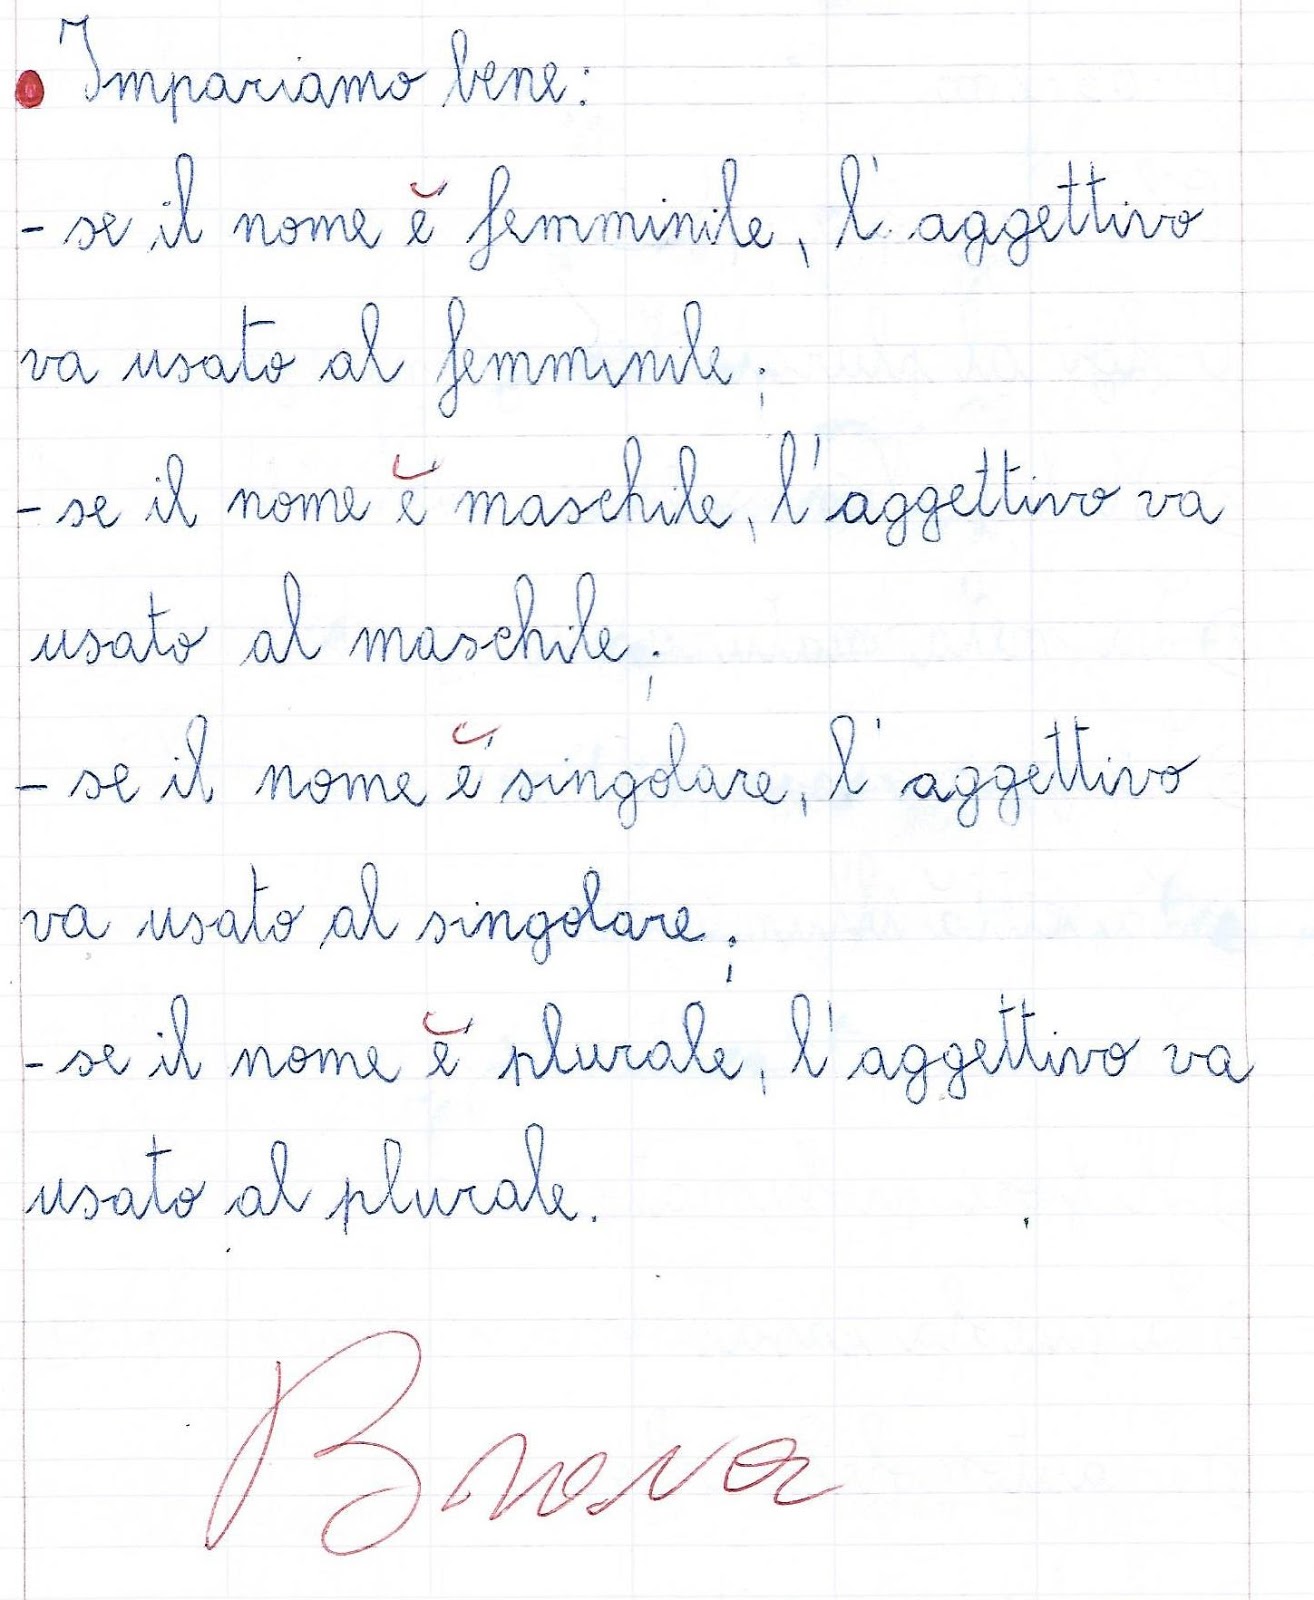 Impariamo bene:
- se il nome è femminile, l'aggettivo
va usato al femminile;
- se il nome è maschile, l'aggettivo va
usato al maschile;
- se il nome è singolare, l'aggettivo
va usato al singolare;
- se il nome è plurale, l'aggettivo va
usato al plurale.
Brava